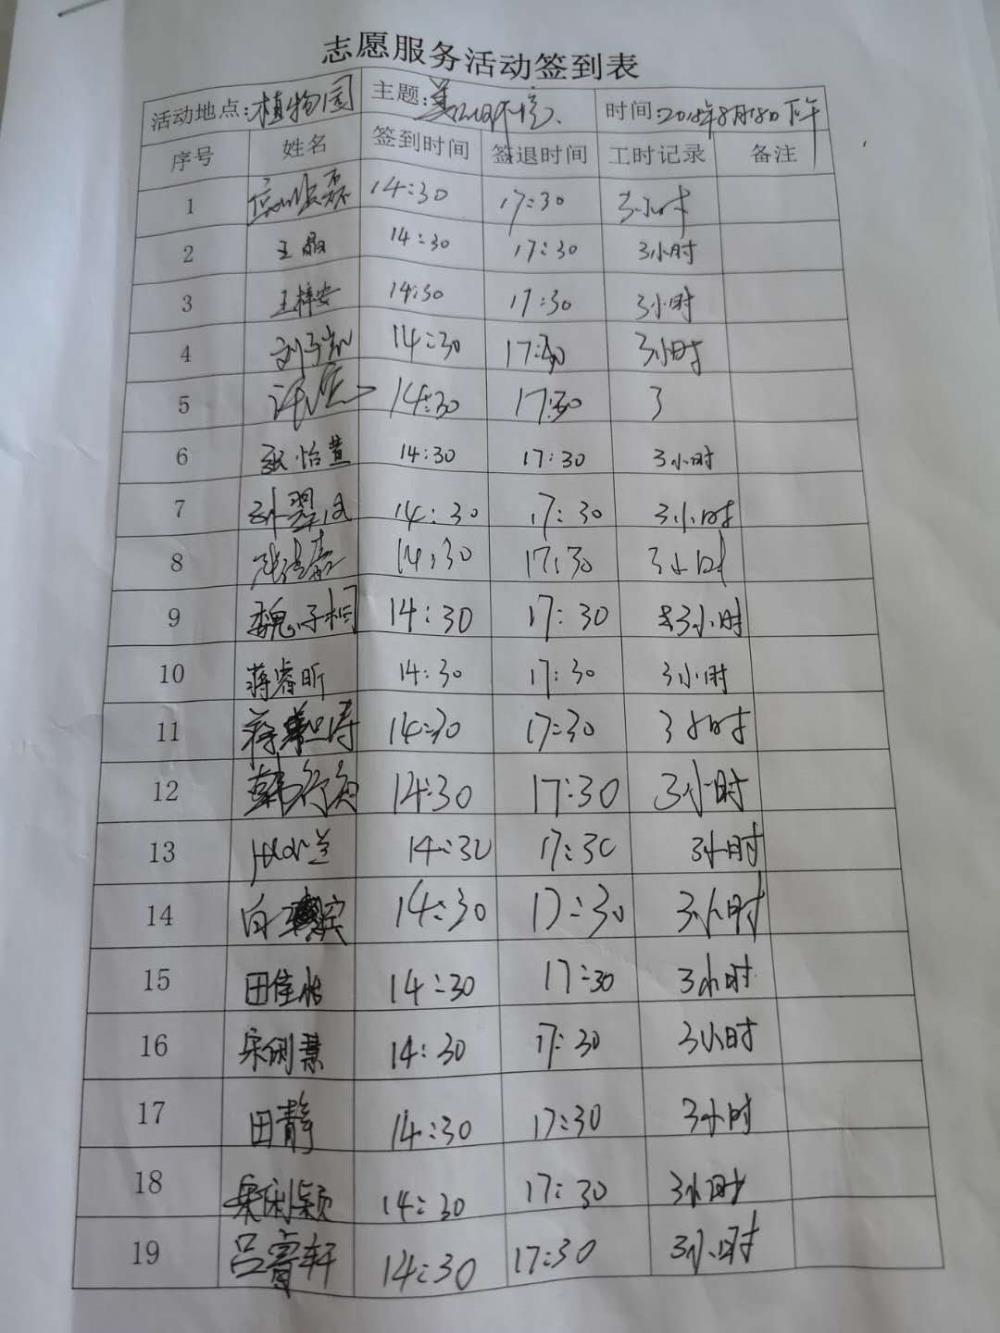 志愿服务活动签到表
活动地点:植物园 主题:美化环境 时间:2018年8月18日下午
序号 姓名 签到时间 签退时间 工时记录 备注
1 14:30 17:30 3小时
2 王 14:30 17:30 3小时
3 王梓安 14:30 17:30 3小时
4 刘子 14:30 17:30 3小时
5 14:30 17:30 3
6 张怡萱 14:30 17:30 3小时
7 14:30 17:30 3小时
8 14:30 17:30 3小时
9 魏子桐 14:30 17:30 3小时
10 蒋睿昕 14:30 17:30 3小时
11 蒋 涛 14:30 17:30 3小时
12 韩行 14:30 17:30 3小时
13 14:30 17:30 3小时
14 白 14:30 17:30 3小时
15 田佳怡 14:30 17:30 3小时
16 宋俐慧 14:30 17:30 3小时
17 田静 14:30 17:30 3小时
18 俐颖 14:30 17:30 3小时
19 吕睿轩 14:30 17:30 3小时